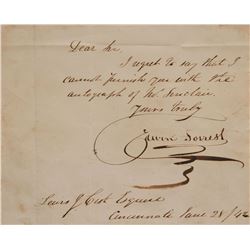 Dear Sir,
I regret to say that I
cannot furnish you with the
autograph of Mr. Sinclair.
Yours truly
Edwin Forrest
Lewis J Cist Esquire
Cincinnati June 28/46